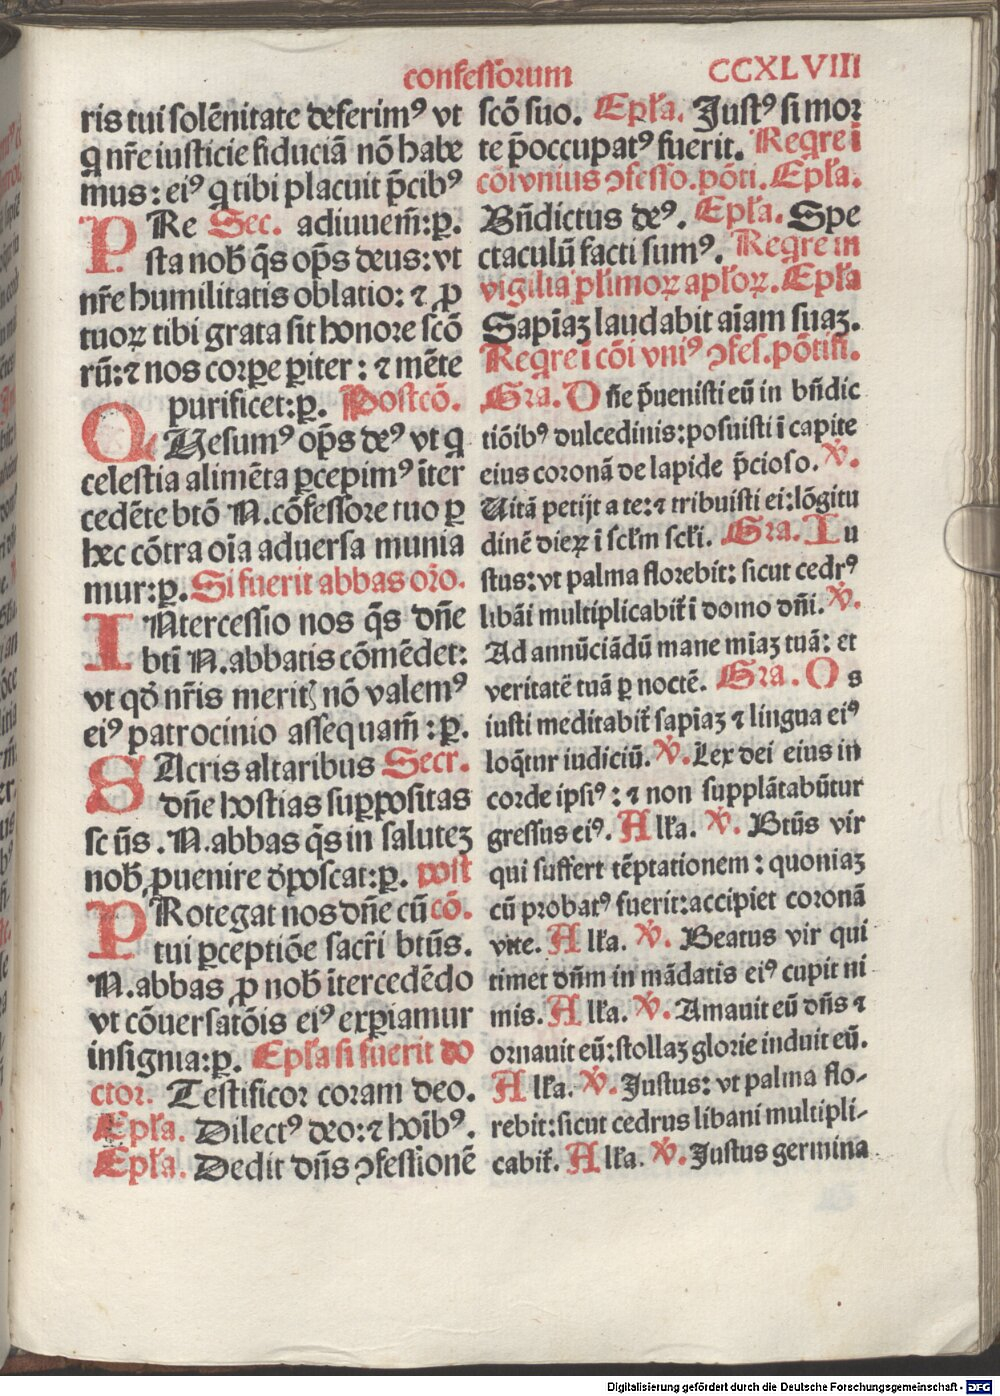 confessorum CCXLVIII
ris tui solẽnitate deferimꝰ vt
q nr̃e iusticie fiduciã nõ habe
mus: eiꝰ q tibi placuit p̃cibꝰ
PRe Sec. adiuuem̃: ꝑ.
sta nob̃ q̃s op̃s deus: vt
nr̃e humilitatis oblatio: ⁊ ꝓ
tuoꝝ tibi grata sit honore scõ
rũ: ⁊ nos corꝑe ꝑiter: ⁊ mẽte
purificet: ꝑ. Postcõ.
QUesumꝰ op̃s deꝰ vt q
celestia alimẽta ꝑcepimꝰ ĩter
cedẽte btõ N. cõfessore tuo ꝑ
hec cõtra oĩa aduersa munia
mur: ꝑ. Si fuerit abbas or̃o.
INtercessio nos q̃s dñe
bt̃i N. abbatis cõmẽdet:
vt qð nr̃is merit̃ nõ valemꝰ
eiꝰ patrocinio assequam̃: ꝑ.
SAcris altaribus Secr.
dñe hostias suꝑpositas
sc ũs. N. abbas q̃s in saluteꝫ
nob̃ ꝓuenire d̃poscat: ꝑ. post
PRotegat nos dñe cũ cõ.
tui ꝑceptiõe sacr̃i btũs.
N. abbas ꝓ nob̃ ĩtercedẽdo
vt cõuersatõis eiꝰ exꝑiamur
insignia: ꝑ. Epl̃a si fuerit do
ctor. Testificor coram deo.
Epl̃a. Dilectꝰ deo: ⁊ hoĩbꝰ.
Epl̃a. Dedit dñs ꝯfessionẽ
scõ suo. Epl̃a. Justꝰ si mor
te p̃occupatꝰ fuerit. Reqre ĩ
cõi vnius ꝯfesso. põti. Epl̃a.
Bñdictus deꝰ. Epl̃a. Spe
ctaculũ facti sumꝰ. Reqre in
vigilia pl̃imoꝝ apl̃oꝝ. Epl̃a
Sapĩaꝫ laudabit aĩam suaꝫ.
Reqre ĩ cõi vniꝰ ꝯfes. põtifi.
Gra. Dñe p̃uenisti eũ in bñdic
tiõibꝰ dulcedinis: posuisti ĩ capite
eius coronã de lapide p̃cioso. ℣.
Uitã petijt a te: ⁊ tribuisti ei: lõgitu
dinẽ dieꝝ ĩ scl̃m scl̃i. Gra. Iu
stus: vt palma florebit: sicut cedrꝰ
libãi multiplicabit̃ ĩ domo dñi. ℣.
Ad annũciãdũ mane mĩaꝫ tuã: et
veritatẽ tuã ꝑ noctẽ. Gra. Os
iusti meditabit̃ sapĩaꝫ ⁊ lingua eiꝰ
loq̃tur iudiciũ. ℣. Lex dei eius in
corde ipsiꝰ: ⁊ non supplãtabũtur
gressus eiꝰ. Allʼa. ℣. Btũs vir
qui suffert tẽptationem: quoniaꝫ
cũ probatꝰ fuerit: accipiet coronã
vite. Allʼa. ℣. Beatus vir qui
timet dñm in mãdatis eiꝰ cupit ni
mis. Allʼa. ℣. Amauit eũ dñs ⁊
ornauit eũ: stollaꝫ glorie induit eũ.
Allʼa. ℣. Justus: vt palma flo-
rebit: sicut cedrus libani multipli-
cabit̃. Allʼa. ℣. Justus germina
Digitalisierung gefördert durch die Deutsche Forschungsgemeinschaft - DFG